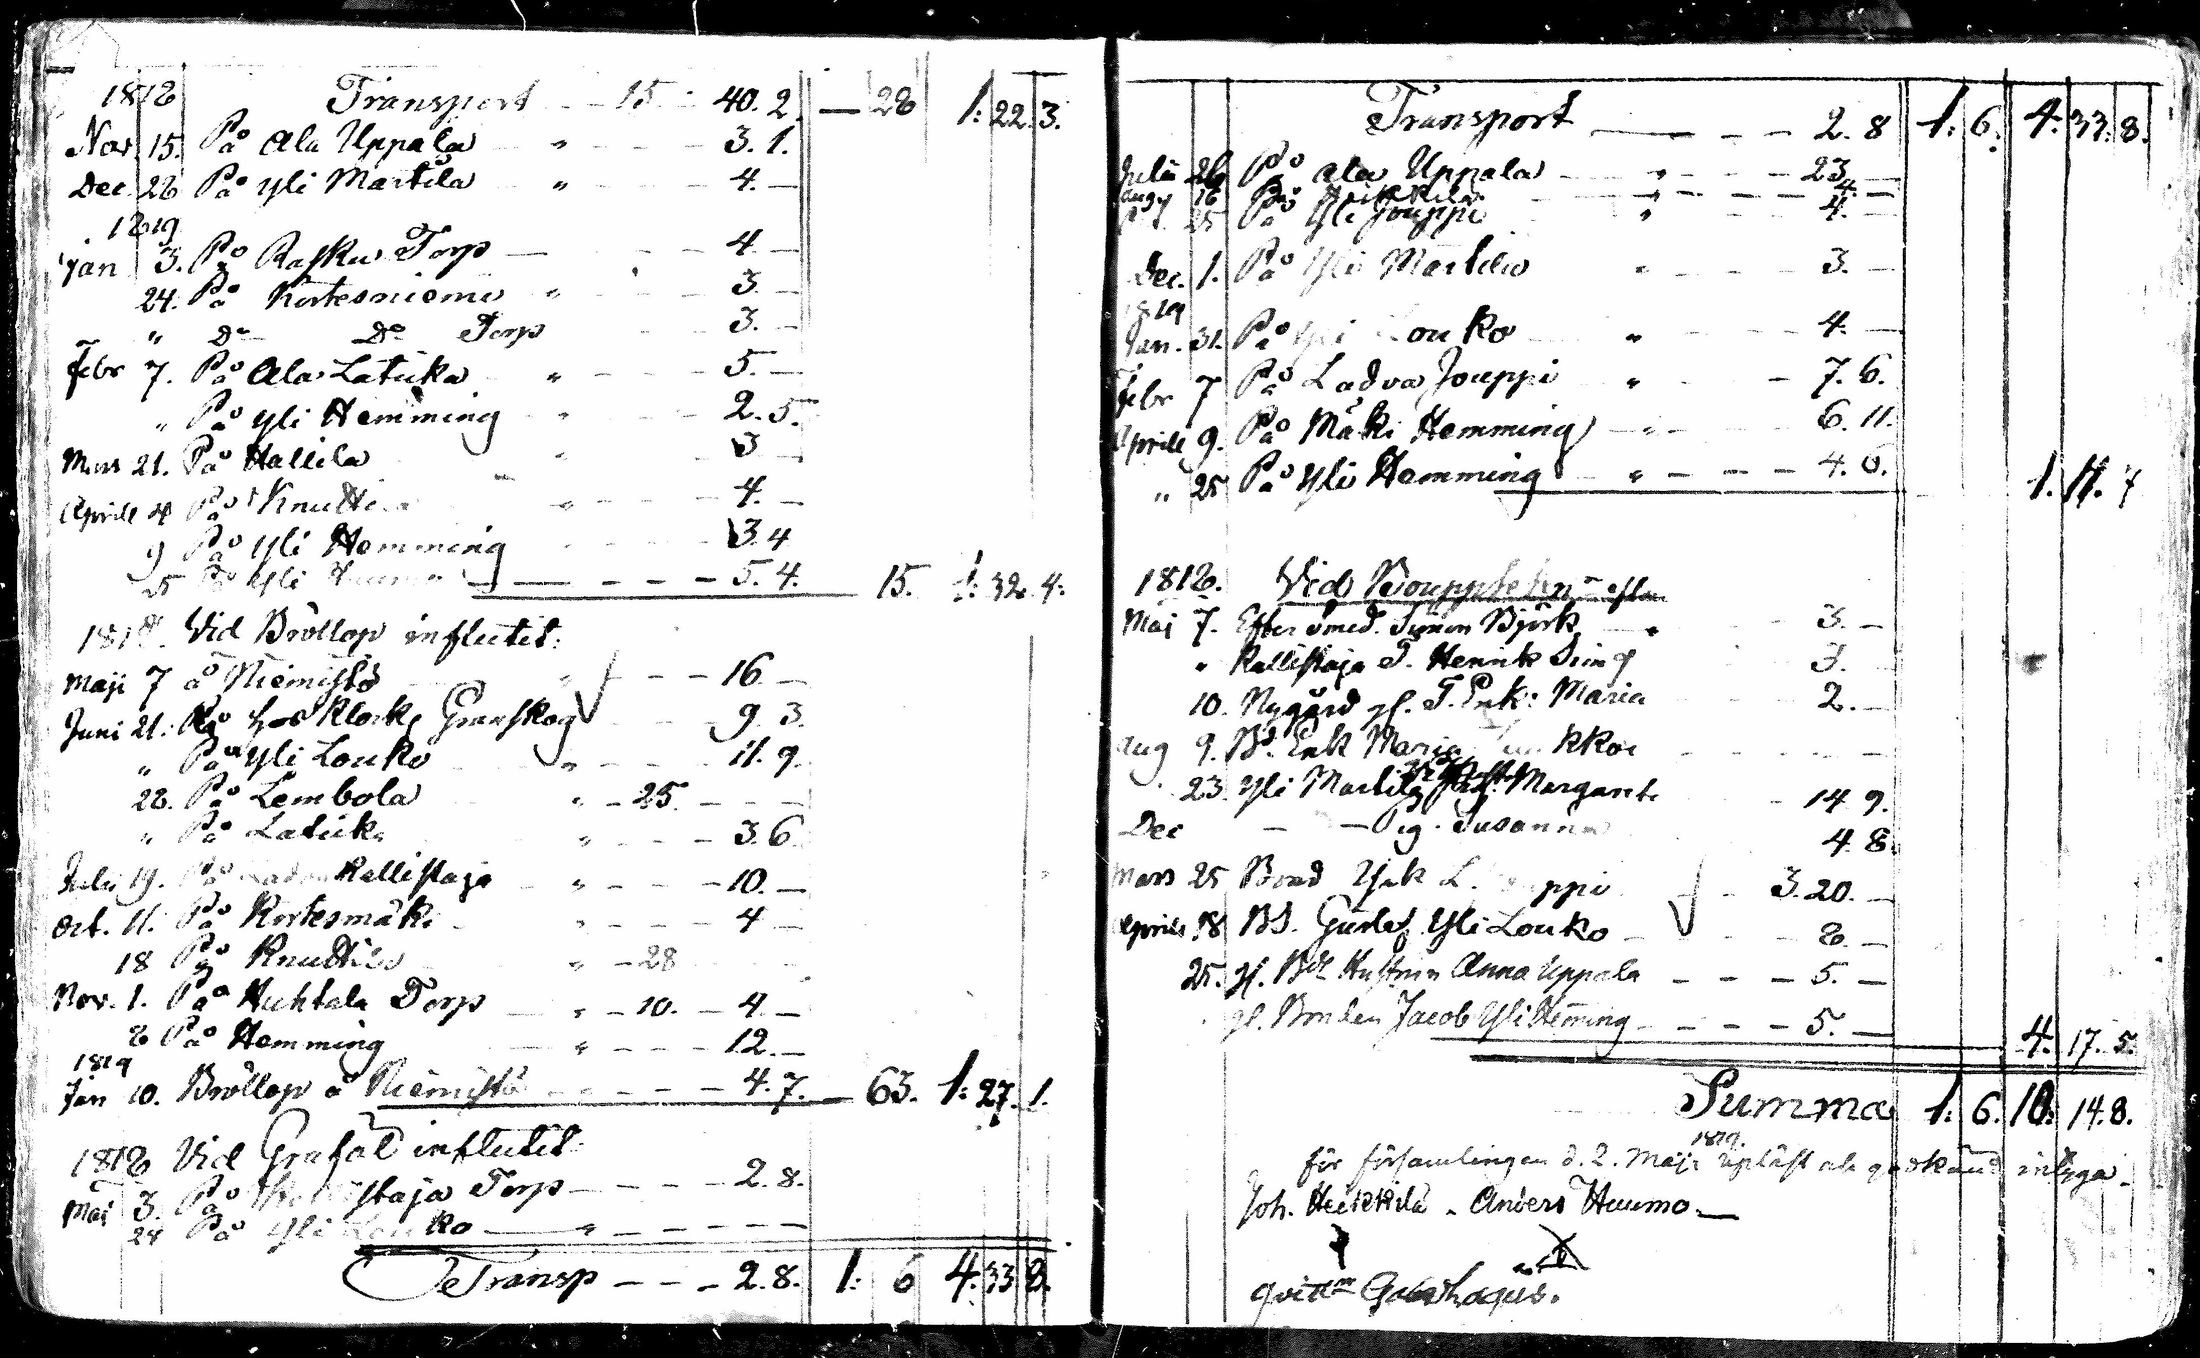 1818 Transport - - 15 - 40. 2. — 28 1: 22. 3.
Nov. 15. På Ala Uppala " - - - 3. 1.
Dec. 28 På Yli Martila " - - - 4. —
1819
Jan 3. På Rasku Torp — - - 4 —
24. På Kortesniemi " - - - 3 —
" Do Do Torp - - 3. —
Febr 7. På Ala Latuka " - - - 5. —
" På Yli Hemming " - - - 2. 5.
Mars 21. På Hallila " - - 3 —
Aprill 4 På Knuttila " - - - 4. —
9 På Yli Hemming - - - - 3. 4
25 På Yli — - - - 5. 4. 15. 1: 32. 4.
1818. Vid Bröllop influtit:
Maji 7 å Niemistö " - - - 16 —
Juni 21. På hos Klock Granskog - - - 9. 3.
" På Yli Louko " - - - 11. 9.
28. På Lembola " - 25. - - -
" På Latuka " - - - 3. 6
Julii 19. På Kallistaja - " - - - 10. —
Oct. 11. På Kortesmäki - " - - - 4 —
18 På Knuttila " - 28 - - -
Nov. 1. På Huhtala Torp — " - 10. - 4. —
8 På Hemming — " - - - 12. —
1819
Jan 10. Bröllop å Niemistö - - - - 4. 7. — 63. 1: 27. 1.
1818 Vid Grafäl influtit
Maj 3. På Torp - - - - 2. 8.
24 På Yli Louko — " - - - -
Transp - - - 2. 8. 1: 6 4. 33 8.
Transport — - - 2. 8 1: 6. 4. 33. 8.
Julii 26 På Ala Uppala - " - - - 23 —
Aug 16 På - " - - - 4. —
25 På Yli Jouppi " - - 4. —
Dec. 1. På Yli Martila " - - - 3. —
1819
Jan. 31. På Yli Louko " - - - 4. —
Febr 7 På Ladva Jouppi " - - 7. 6.
Aprill 9. På Mäki Hemming - " - - - 6. 11.
" 25 På Yli Hemming - " - - - 4. 6. 1. 11. 7
1818. Vid
Maj 7. Efter Simon Björk - 3. —
" Kallistaja T. Henrik 3. —
10. Nygård gl. T. Erk: Maria 2. —
Aug 9. Bd. Erik Maria - - - -
23. Yli Martila Margareta - 14 9.
Dec - - Pig. Susanna 4. 8.
Mars 25 Bond - - 3. 20. —
Aprill 18 Bd. Gustaf Yli Louko - - - 8. —
25. gl. Bd. Hustrun Anna Uppala - - - 5. —
gl. Bonden Jacob Yli Hemming - - - - 5. — 4. 17. 5.
Summa 1: 6. 10: 14. 8.
för församlingen d. 2. Maji 1819. upläst och godkänd intyga
Joh. Heikkilä - Anders Huumo —